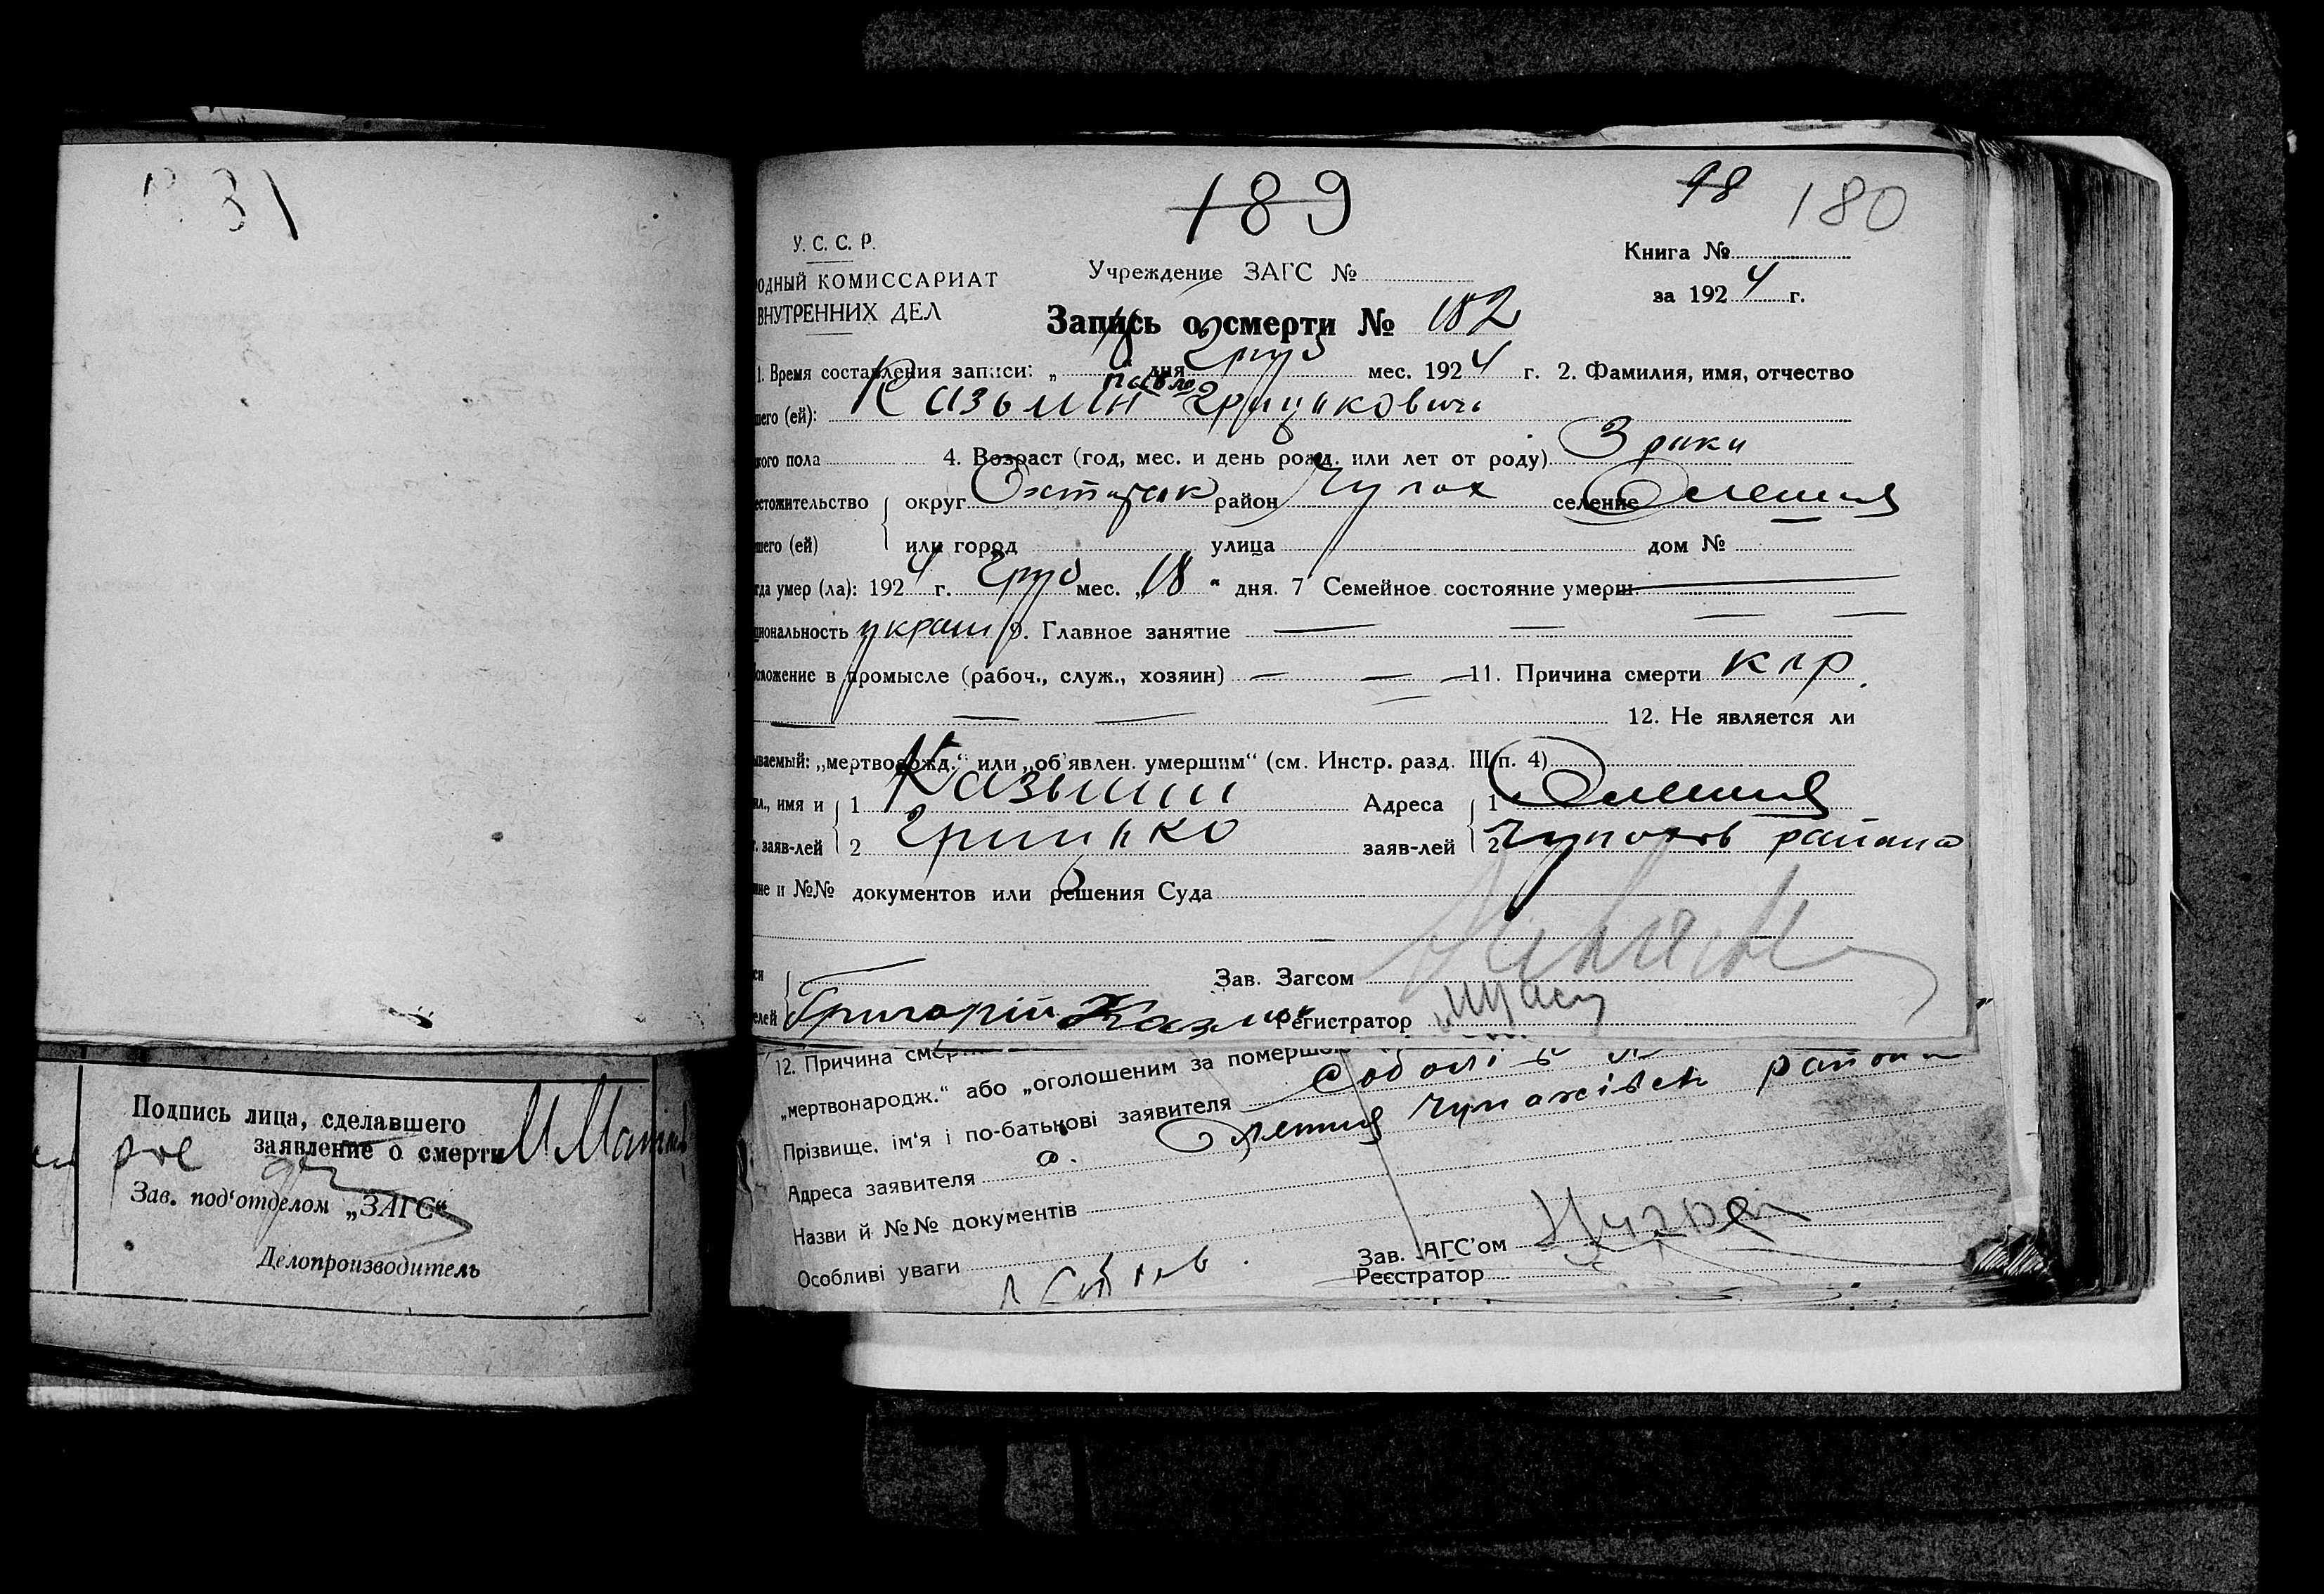 31
189
98 180
У. С. С. Р.
ОДНЫЙ КОМИССАРИАТ
ВНУТРЕННИХ ДЕЛ
Учреждение ЗАГС №
Книга №
за 1924 г.
Запись о смерти № 182
1. Время составления записи: „18 дня груд мес. 1924 г. 2. Фамилия, имя, отчество
шего (ей): Казьмин Павло Грицькович
кого пола 4. Возраст (год, мес. и день рожд. или лет от роду) 3 роки
естожительство округ Охтирськ район Чупах селение Олешня
шего (ей) или город улица дом №
гда умер (ла): 1924 г. груд мес. „18" дня. 7 Семейное состояние умерш.
циональность украин 9. Главное занятие
оложение в промысле (рабоч., служ., хозяин) 11. Причина смерти кпр
12. Не является ли
ываемый: „мертворожд." или „об'явлен. умершим" (см. Инстр. разд. III п. 4)
ил., имя и 1 Казьмин Адреса 1 Олешня
. заяв-лей 2 Грицько заяв-лей 2 Чупахів района
ние и №№ документов или решения Суда
си Зав. Загсом
елей Григорій Казмин Регистратор
12. Причина смер
„мертвонародж." або „оголошеним за помершо
Прізвище, ім'я і по-батькові заявителя
Адреса заявителя с. Олешня Чупахівськ района
Назви й №№ документів
Особливі уваги
Зав. ЗАГС'ом
Реєстратор
Подпись лица, сделавшего
заявление о смерти
Зав. под'отделом „ЗАГС"
Делопроизводитель